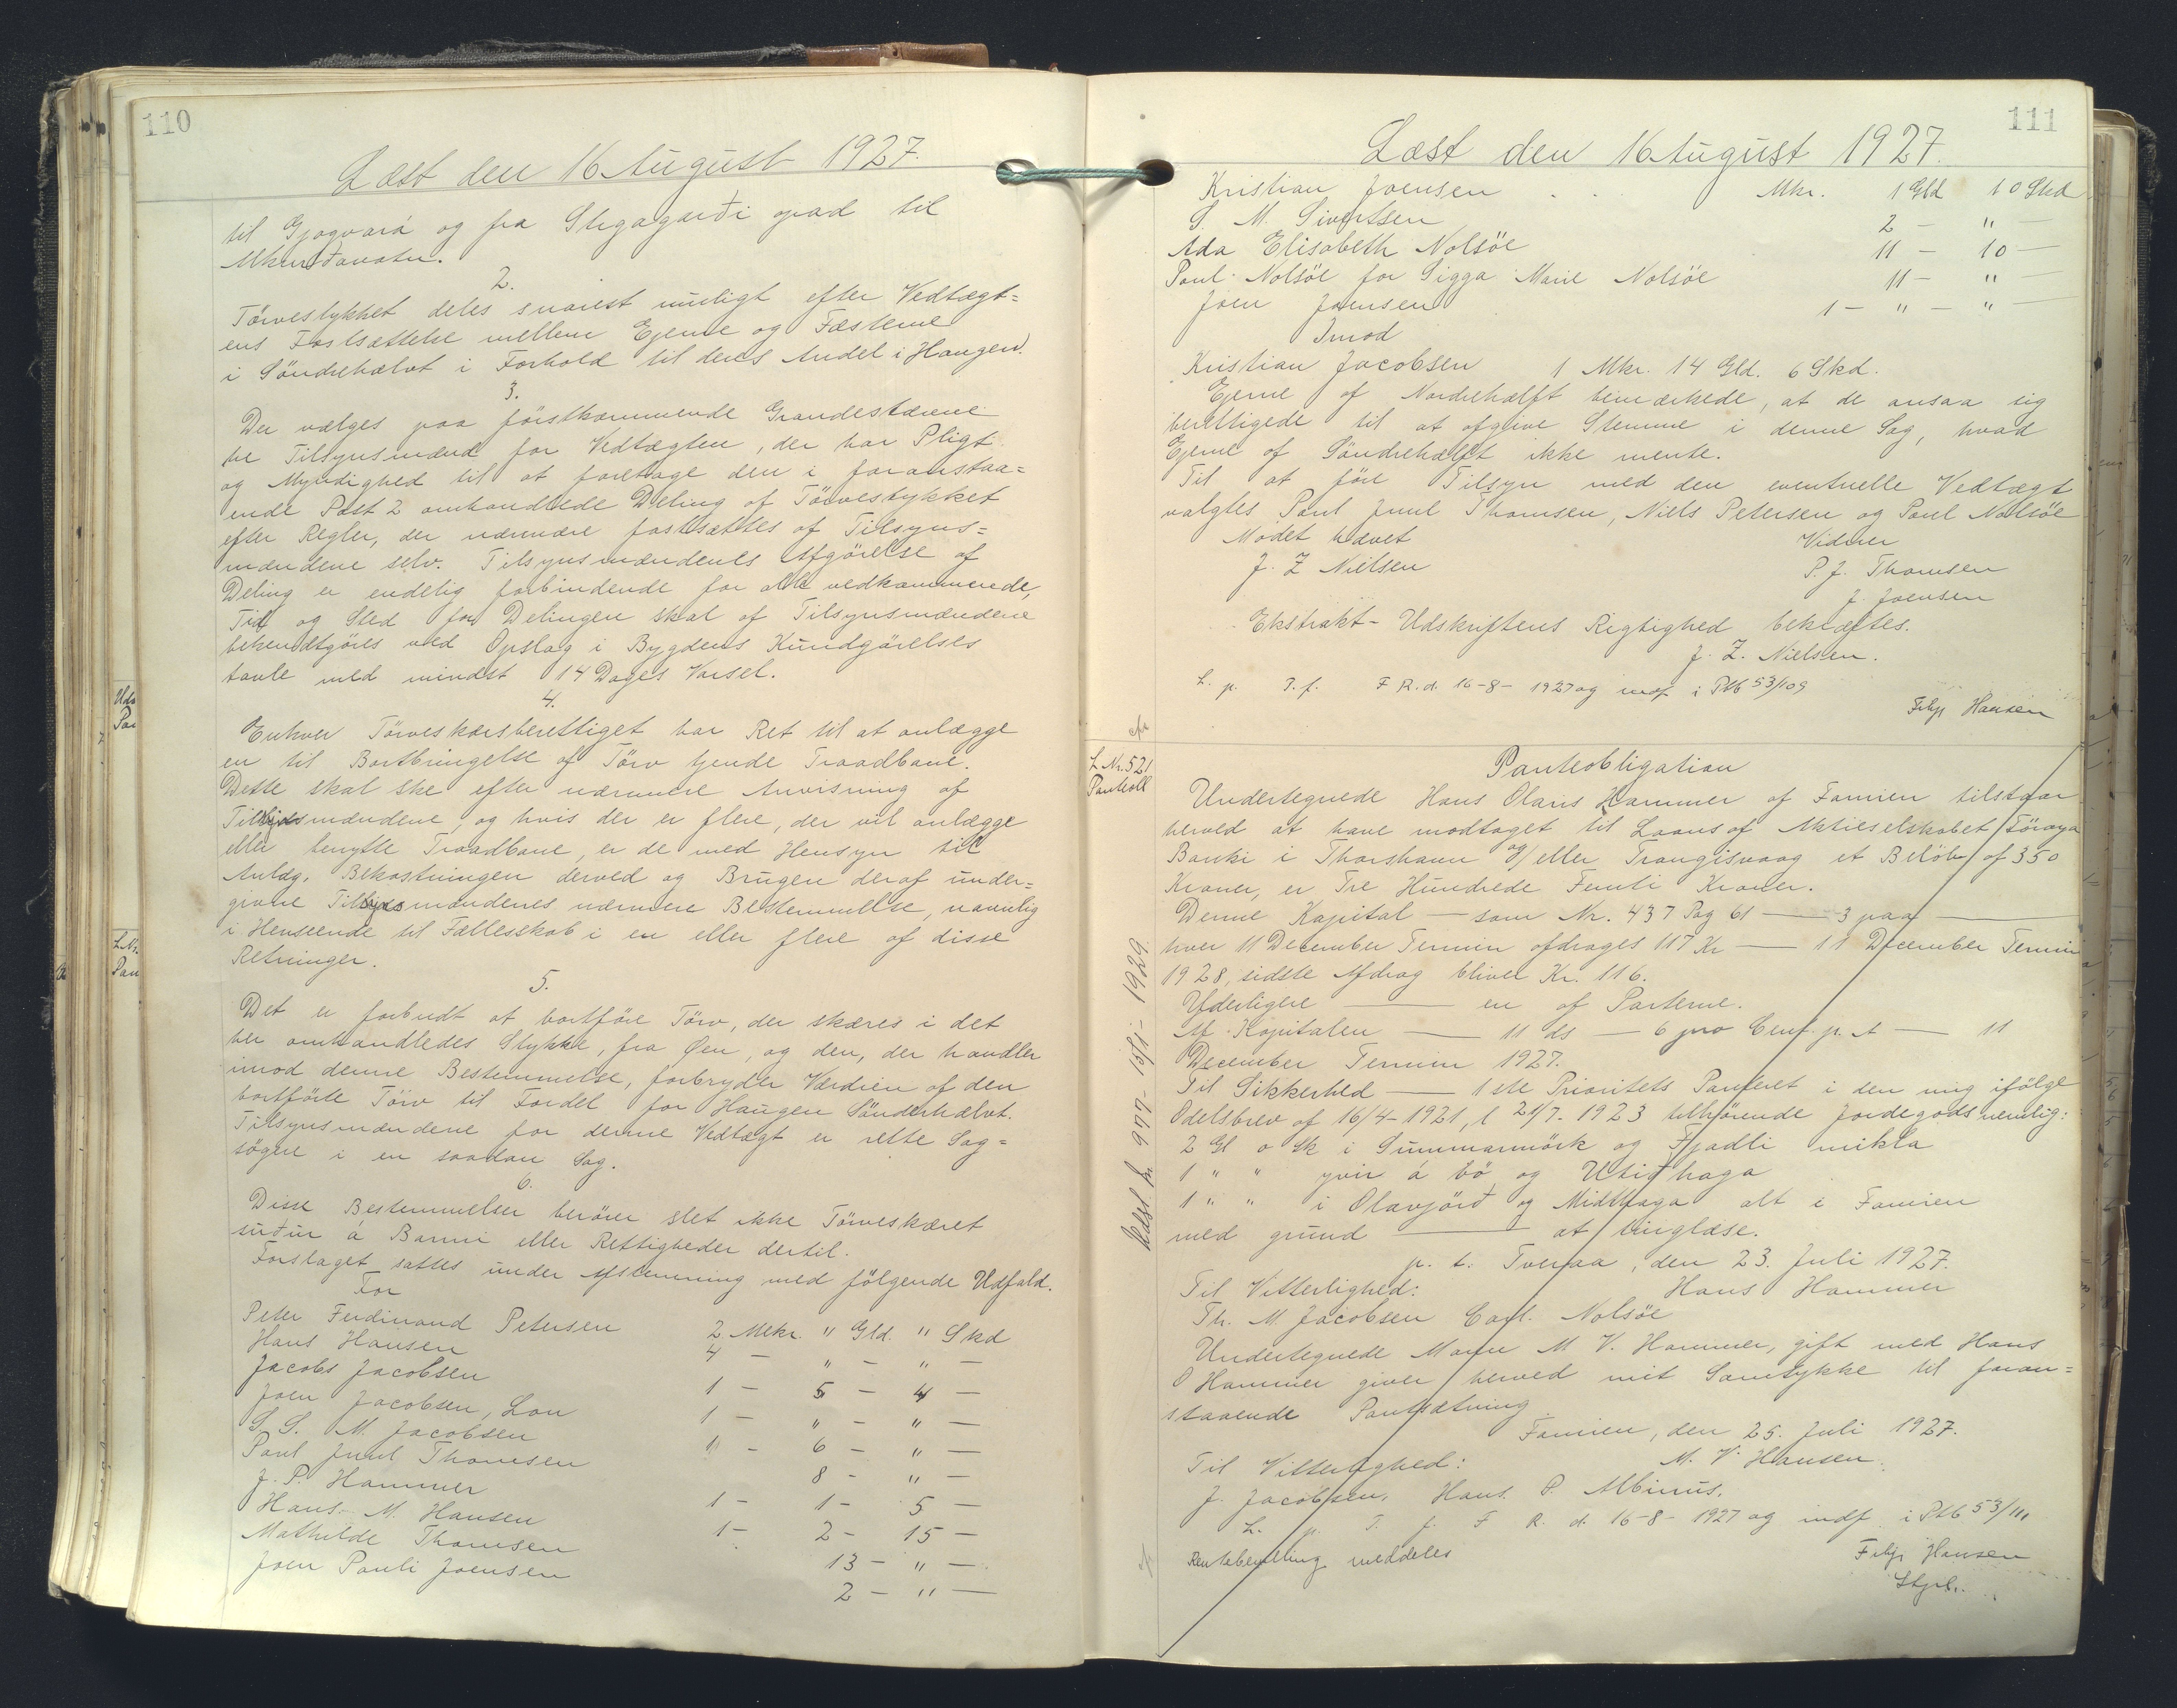 110
Læst den 16 August 1927.
til Gjogvará og fra Stigagarði opad til
2.
Törvestykket deles snarest muligt efter Vedtægt=
ens Fastsættelse mellem Ejerne og Fæsterne
i Söndrehalvt i Forhold til deres Andel i Haugen.
3.
Der vælges paa förstkommende Grandestævne
tre Tilsynsmænd for Vedtægten, der har Pligt
og Myndighed til at foretage den i foranstaa=
ende Post 2 omhandlede Deling af Törvestykket
efter Regler, der nærmere fastsættes af Tilsyns=
mændene selv. Tilsynsmændenes Afgörelse af
Deling er endelig forbindende for alle vedkommende,
Tid og Sted for Delingen skal af Tilsynsmændene
bekendtgöres ved Opslag i Bygdens Kundgörelses
tavle med mindst 14 Dages Varsel.
4.
Enhver Törveskærsberettiget har Ret til at anlægge
en til Bortbringelse af Törv tjende Traadbane.
Dette skal ske efter nærmere Anvisning af
Tilsynsmændene, og hvis der er flere, der vil anlægge
eller benytte Traadbane, er de med Hensyn til
Anlæg, Bekostningen derved og Brugen deraf under=
givne Tilsynsmændenes nærmere Bestemmelse, navnlig
i Henseende til Fællesskab i en eller flere af disse
Retninger.
5.
Det er forbudt at bortföre Törv, der skæres i det
her omhandledes Stykke, fra Øen, og den, der handler
imod denne Bestemmelse, forbryder Værdien af den
bortförte Törv til Fordel for Haugen Sönderhalvt.
Tilsynsmændene for denne Vedtægt er rette Sag=
sögere i en saadan Sag.
6.
Disse Bestemmelser berörer slet ikke Törveskæret
suður á Barmi eller Rettigheder dertil.
Forslaget sattes under Afstemning med fölgende Udfald.
For
Peter Ferdinand Petersen 2 Mrkr. " Gld. " Skd
Hans Hansen 4 — " — " —
Jacobs Jacobsen 1 — 5 — 4 —
Joen Jacobsen, Lon 1 — " — " —
S. S. M. Jacobsen 1 — 6 — " —
Poul Juul Thomsen 8 — " —
J. P. Hammer 1 — 1 — 5 —
Hans M. Hansen 1 — 2 — 15 —
Mathilde Thomsen 13 — " —
Joen Pauli Joensen 2 — " —
111
Læst den 16 August 1927.
Kristian Joensen . . Mkr. 1 Gld 10 Skd
S. M. Sivertsen 2 — "
Ada Elisabeth Nolsöe 11 — 10 —
Poul Nolsöe for Sigga Marie Nolsöe 11 — " —
Joen Joensen 1 — " — " —
Imod
Kristian Jacobsen 1 Mkr. 14 Gld. 6 Skd.
Ejerne af Nordrehalft bemærkede, at de ansaa sig
berettigede til at afgive Stemme i denne Sag, hvad
Ejerne af Söndrehalft ikke mente.
Til at före Tilsyn med den eventuelle Vedtægt
valgtes Poul Juul Thomsen, Niels Petersen og Poul Nolsöe
Mödet hævet Vidner
J. Z Nielsen P. J. Thomsen
J. Joensen
Ekstrakt-Udskriftens Rigtighed bekræftes.
J. Z. Nielsen.
L. p. T. f. F R. d. 16-8- 1927 og indf i Ptb 53/109
Filip Hansen
L Nr. 521
Panteobl
Panteobligation
Undertegnede Hans Olaris Hammer af Famien tilstaar
herved at have modtaget til Laans af Aktieselskabet Föroya
Banki i Thorshavn og/eller Trangisvaag et Belöb af 350
Kroner, er Tre Hundrede Femti Kroner.
Denne Kapital — som Nr. 437 Pag 61 — 3 paa —
hver 11 December Termin afdrages 117 Kr — 11 December Termin
1928, sidste Afdrag bliver Kr. 116.
Yderligere — en af Parterne.
Af Kapitalen — 11 ds — 6 pro Cent. p. A — 11
December Termin 1927.
Til Sikkerhed — 1ste Prioritets Panteret i den mig ifölge
Odelsbrev af 16/4-1921, l 21/7. 1923 tilhörende Jordegods nemlig:
2 Gl o Sk i Summarmörk og Fjadli mikla
1 " " yvir á bö og Utidhaga
1 " " i Olavjörð og Midthaga alt i Famien
med grund — at tinglæse.
p. t. Tveraa, den 23. Juli 1927.
Til Vitterlighed: Hans Hammer
Th. M. Jacobsen Carl. Nolsöe
Undertegnede Marie M V. Hammer, gift med Hans
O Hammer giver herved mit Samtykke til foran=
staaende Pantsætning.
Famien, den 25. Juli 1927.
Til Vitterlighed: M. V. Hansen.
J. Jacobsen, Hans P. Albinus.
L. p. T. f. F R. d. 16-8- 1927 og indf. i Ptb 53/111
Rentebevilling meddeles Filip Hansen
Udsl. h. 977- 15/1- 1929